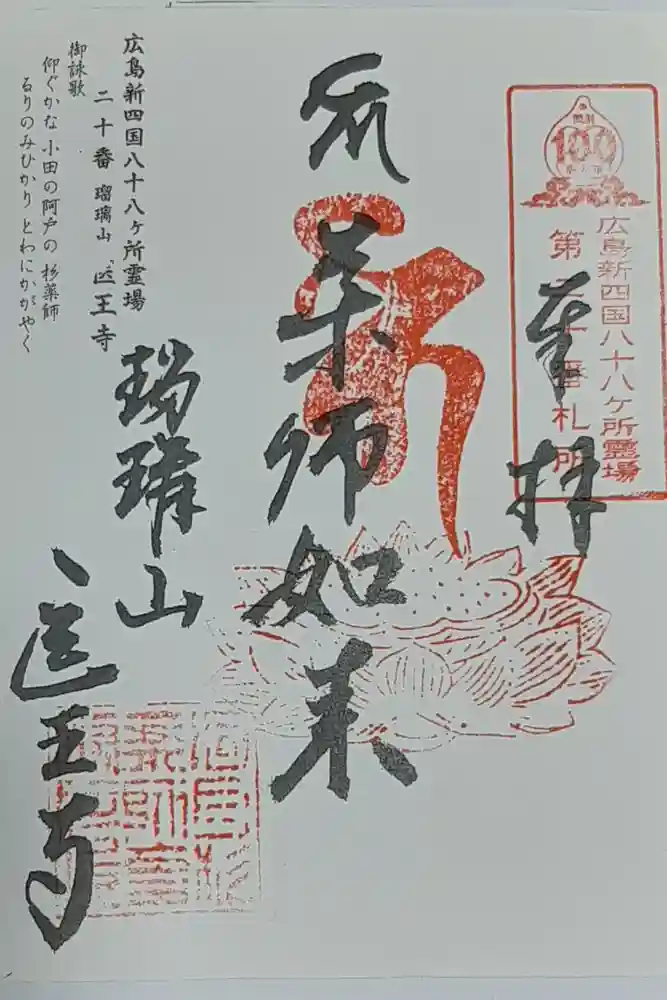 広島新四国八十八ヶ所霊場
第二十番札所
奉拝
薬師如来
瑠璃山
医王寺
広島新四国八十八ヶ所霊場
二十番 瑠璃山 医王寺
御詠歌
仰ぐかな 小田の阿戸の 杉薬師
るりのみひかり とわにかがやく